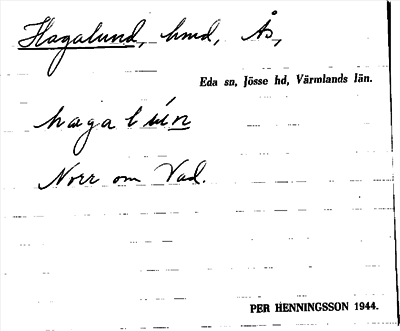 Hagalund, hmd, Ås,
Eda sn, Jösse hd, Värmlands län.
hagalún
Norr om Vad.
PER HENNINGSSON 1944.